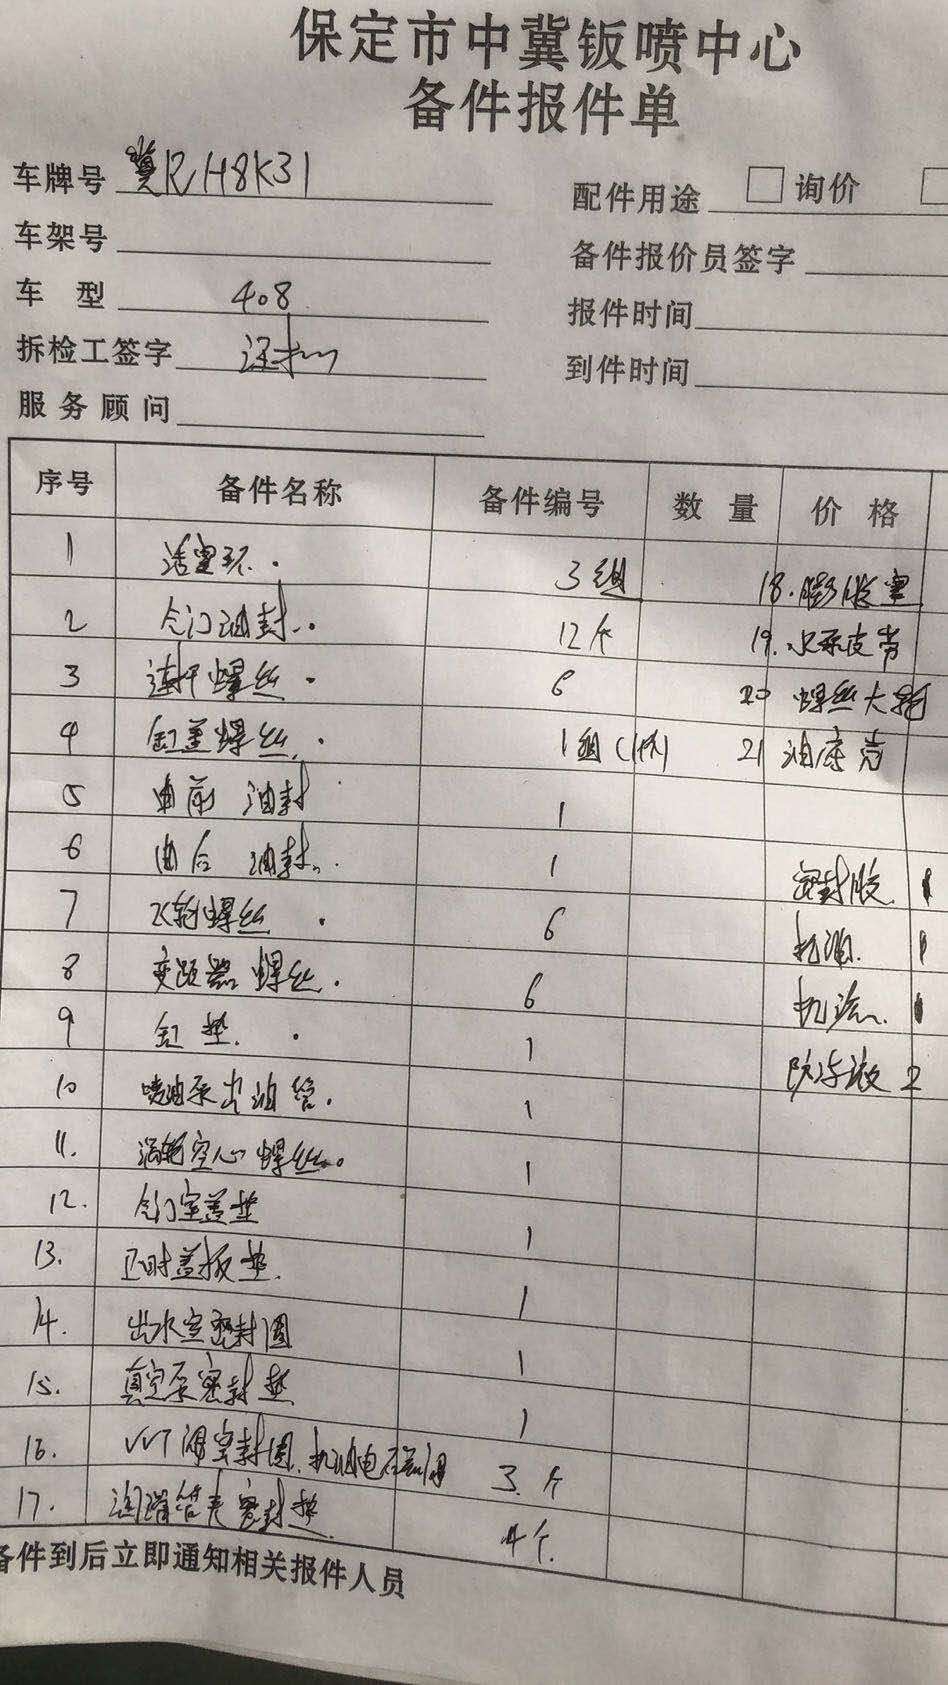 保定市中冀钣喷中心
备件报件单
车牌号 冀R H8K31
配件用途 询价
车架号
备件报价员签字
车 型 408
报件时间
拆检工签字
到件时间
服务顾问
序号 备件名称 备件编号 数 量 价 格
1 活塞环. 3组 18.膨胀塞
2 气门油封.. 12个 19.水泵皮带
3 连杆螺丝. 6 20 螺丝大
4 缸盖螺丝. 1组 21 油底壳
5 曲前 油封 1
6 曲后 油封. 1 密封胶. 1
7 飞轮螺丝. 6 机油. 1
8 变距器螺丝. 6 机滤. 1
9 缸 垫. 1 防冻液 2
10 喷油泵出油管. 1
11. 涡轮空心螺丝. 1
12. 气门室盖垫 1
13. 正时盖板垫. 1
14. 出水室密封圈 1
15. 真空泵密封垫 1
16. VVT阀密封圈.机油电磁阀 3.个
17. 管 密封垫. 4个.
备件到后立即通知相关报件人员